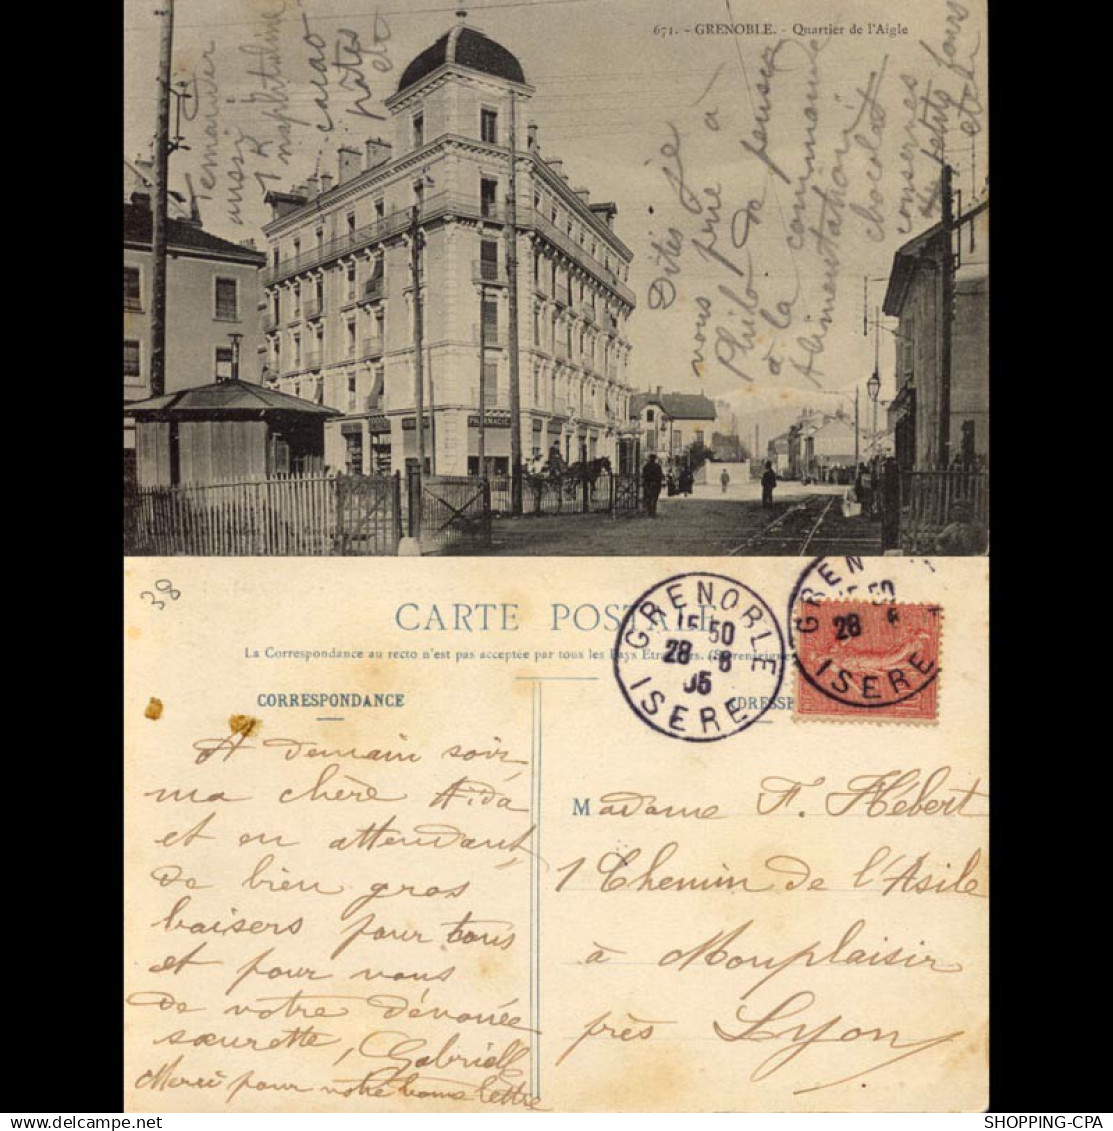 671. - GRENOBLE. - Quartier de l'Aigle
Dites je
nous prie à
Philo de penser
à la commande
Alimentation
chocolat
conserves
petits fours
etc etc
Remarier
aussi
1 K
naphtaline
cacao
pâtes
etc
PHARMACIE
38
CARTE POSTALE
La Correspondance au recto n'est pas acceptée par tous les Pays Etrangers. (Se renseigner
CORRESPONDANCE
ADRESSE
GRENOBLE
15 50
28 - 8
05
ISERE
GRENOBLE
15 50
28 8
ISERE
A demain soir,
ma chère Aïda
et en attendant,
de bien gros
baisers pour tous
et pour vous
de votre dévouée
sœurette, Gabrielle
Merci pour votre bonne lettre
Madame F. Hébert
1 Chemin de l'Asile
à Monplaisir
près Lyon
SHOPPING-CPA